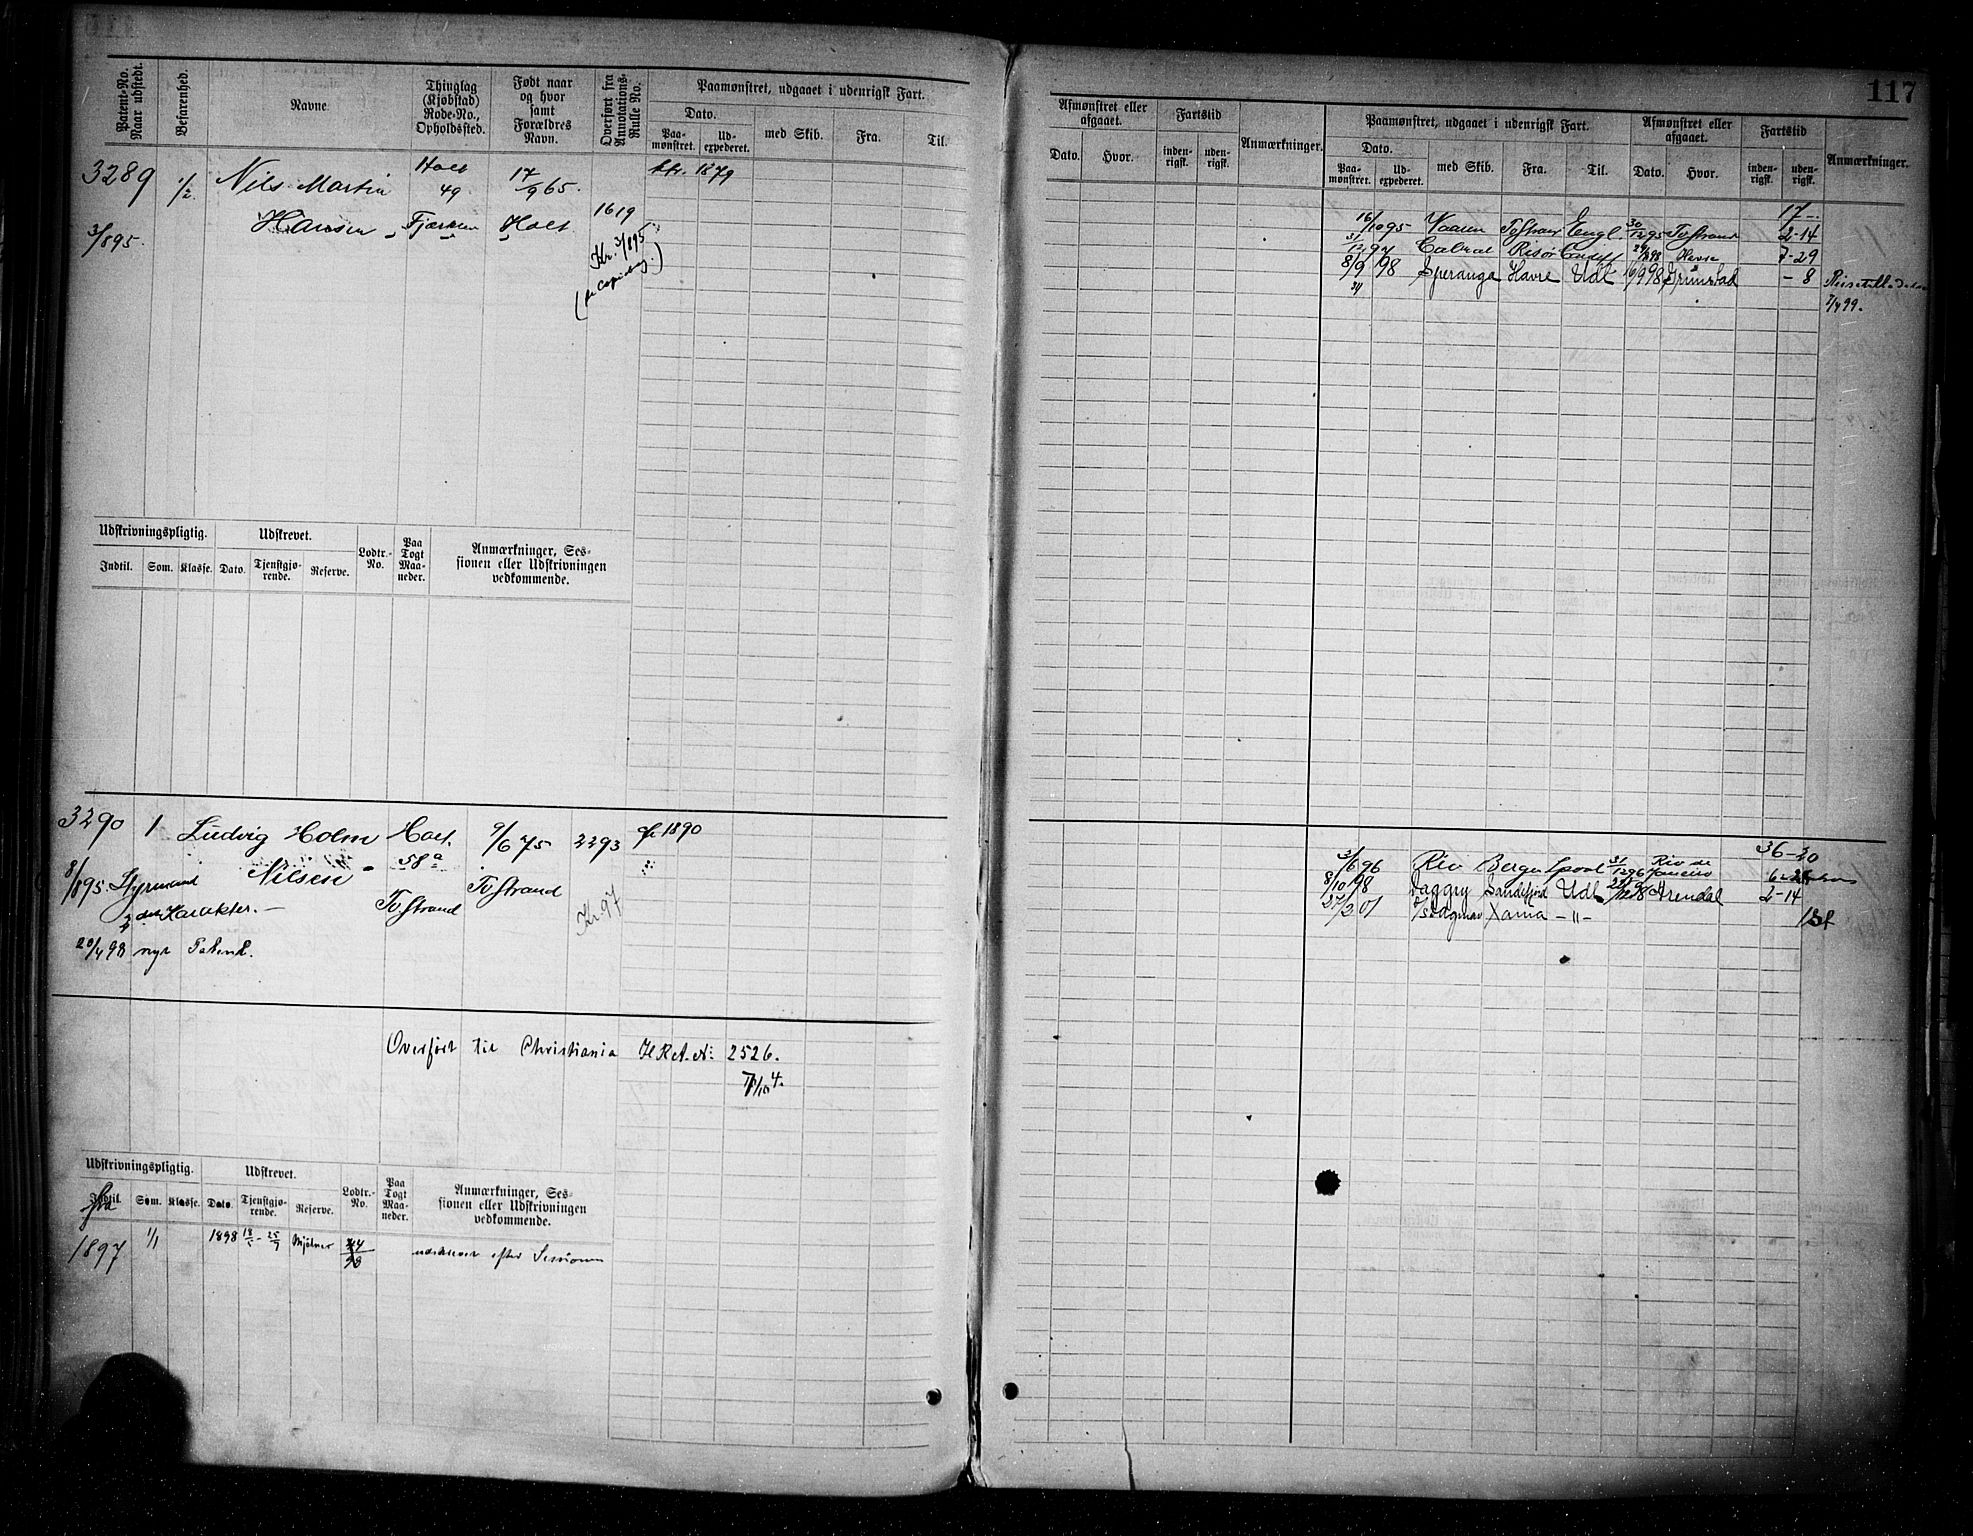 117
Patent-No. Naar udstedt.
Befarenhed.
Navne
Thinglag (Kjøbstad) Rode-No., Opholdssted.
Født naar og hvor samt Forældres Navn.
Overført fra Annotations-Rulle No.
Paamønstret, udgaaet i udenrigsk Fart.
Dato.
Paamønstret. Udexpederet.
med Skib. Fra. Til.
Afmønstret eller afgaaet.
Dato. Hvor.
Fartstid
indenrigsk. udenrigsk.
Anmærkninger.
Paamønstret, udgaaet i udenrigsk Fart.
Dato.
Paamønstret. Udexpederet.
med Skib. Fra. Til.
Afmønstret eller afgaaet.
Dato. Hvor.
Fartstid
indenrigsk. udenrigsk.
Anmærkninger.
3289 1/2 Nils Martin Holt 49 17/9 65. 1879
3/895. Hansen Holt 1619
Kr. 3/895
17 -
16/10 95 Engl. 30/12 95 2-14
Risør 7-29
8/9 98 Speranza Havre Udl. Grimstad - 8
7/4 99.
Udskrivningspligtig. Udskrevet.
Indtil. Som. Klasse. Dato. Tjenstgjørende. Reserve.
Lodtr.-No.
Paa Togt Maaneder.
Anmærkninger, Sessionen eller Udskrivningen vedkommende.
3290 1 Ludvig Holm Holt. 9/6 75 2293 1890
8/895. Styrmand Nilsen 58a
Tvestrand Tvestrand
Karakter. - Kr 97
20/4 98 nyt Patent.
36-20
3/6 96 Rio Bergen 31/12 96 Rio de Janeiro
8/10 98 Daggry Sandefjord Udl. Arendal 2-14
27/2 01 Dagmar -"-
Overført til Christiania H R A. No: 2526.
7/10 4.
Udskrivningspligtig. Udskrevet.
Indtil. Som. Klasse. Dato. Tjenstgjørende. Reserve.
Lodtr.-No.
Paa Togt Maaneder.
Anmærkninger, Sessionen eller Udskrivningen vedkommende.
fra
1897 1/1 1898 Mjølner udskrevet efter Sessionen